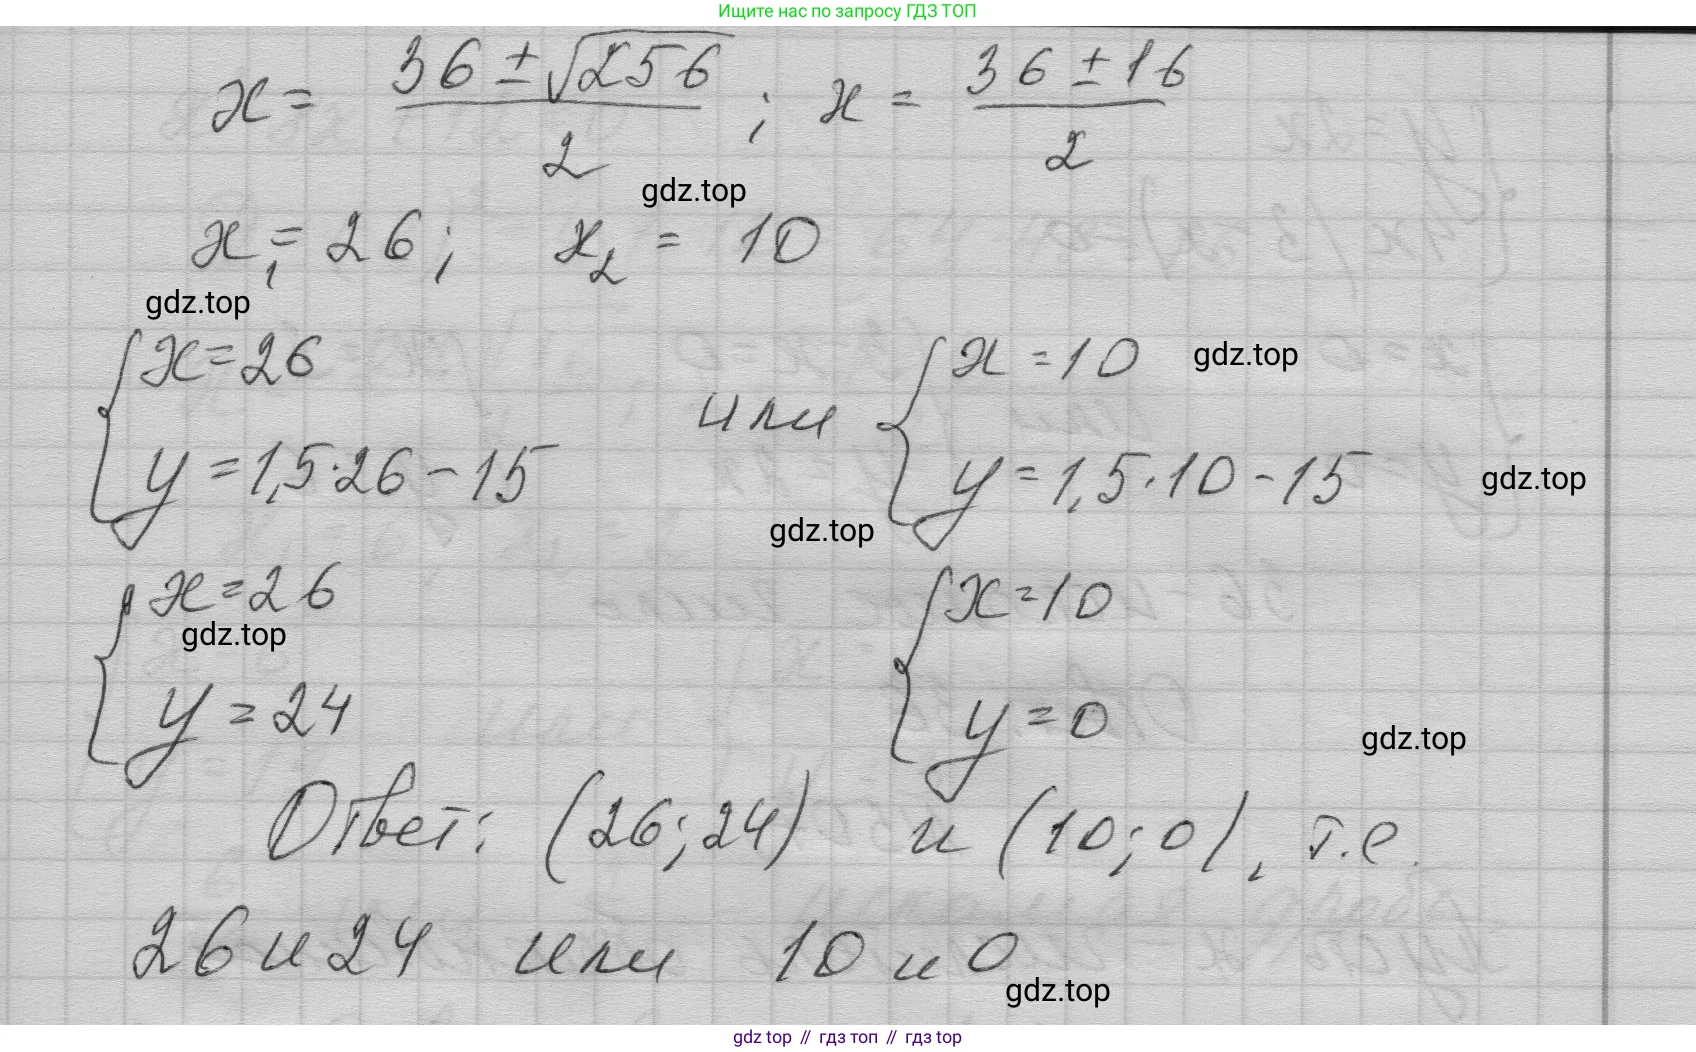 Ищите нас по запросу ГДЗ ТОП
x = (36 ± √256)/2 ; x = (36 ± 16)/2
gdz.top
x₁ = 26; x₂ = 10
gdz.top
{ x = 26 или { x = 10 gdz.top
y = 1,5·26 – 15 y = 1,5·10 – 15 gdz.top
gdz.top
{ x = 26 { x = 10
gdz.top
y = 24 y = 0
gdz.top
Ответ: (26; 24) и (10; 0), т.е.
26 и 24 или 10 и 0
gdz.top
gdz top // гдз топ // гдз top